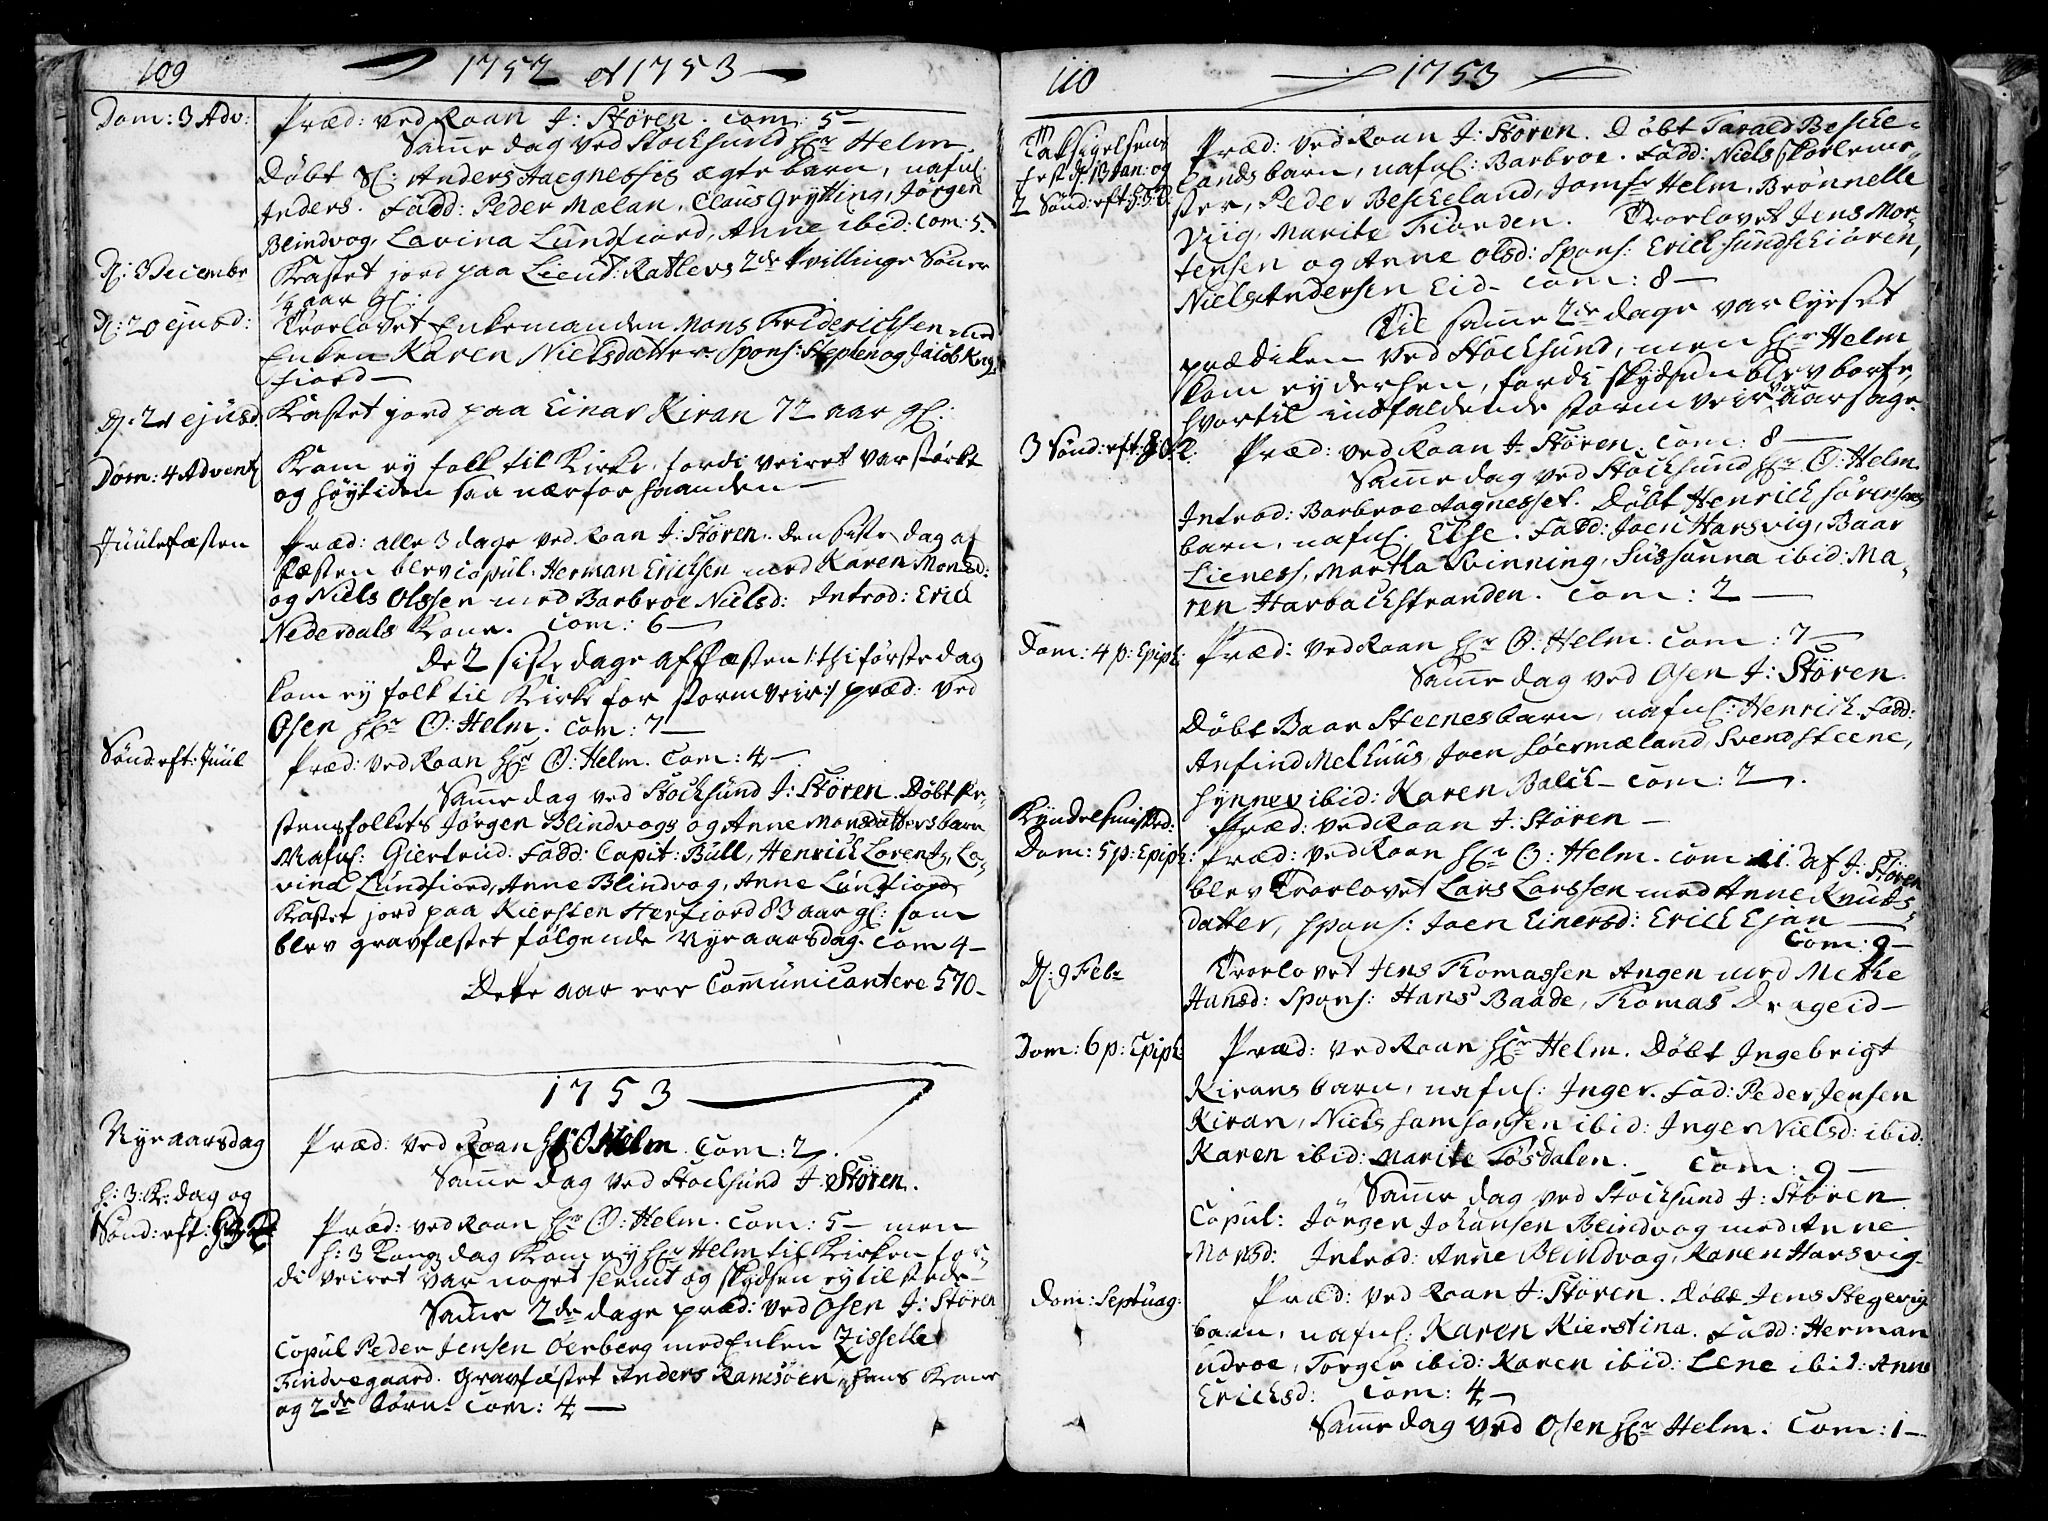 109
1752 et 1753
Dom: 3 Adv:
Præd: ved Roan J: Stören. Com: 5 —
Samme dag ved Stocksund Hr Helm.
Döbt Sl: Anders Aagnessis ægte barn, nafnl:
Anders. Fadd: Peder Mælan, Claus Grytting, Jörgen
Blindvog, Lavina Lundfiord, Anne ibid: Com: 5.
D: 3 Decembr
Kastet jord paa Lieut: Ratlevs 2de tvillinge Sönner
1/4 aar gl:
D: 20 ejusd:
Troelovet Enkemanden Mons Friderichsen med
Enken Karen Nielsdatter. Spons: Stephen og Jacob Kru-
fiord —
D: 21 ejusd:
Kastet jord paa Einar Kiran 72 aar gl:
Dom: 4 Advent
Kom ey folk til Kirke, fordi veiret var störkt
og höytiden saa nær for haanden —
Juulefæsten
Præd: alle 3 dage ved Roan J: Stören. den siste dag af
fæsten blev copul. Herman Ericksen med Karen Monsd:
og Niels Olssen med Barbroe Nielsd: Introd: Erick
Nederdals Kone. Com: 6 —
De 2 siste dage af Fæsten /: thi förste dag
kom ey folk til Kirke for stormveir :/ præd: ved
Osen Hr O: Helm. Com: 7 —
Sönd: eft: Juul
Præd: ved Roan Hr O: Helm. Com: 4 —
Samme dag ved Stocksund J: Stören. Döbt Fe-
stensfolkets Jörgen Blindvogs og Anne Monsdatters barn
Nafnl: Giertrud. Fadd: Capit: Bull, Henrick Lorentz, La-
vina Lundfiord, Anne Blindvog, Anne Lundfiord
Kastet jord paa Kiersten Herfiord 83 aar gl: som
blev gravfæstet fölgende Nyeaarsdag. Com 4 —
Dete aar ere Communicantere 570 —
1753
Nyeaarsdag
Præd: ved Roan Hr O Helm. Com: 2.
Samme dag ved Stocksund J: Stören.
h: 3: K: dag og
Sönd: eft: H 3 K
Præd: ved Roan Hr O: Helm. Com: 5 — men
h: 3 Kong dag kom ey Hr Helm til Kirken for-
di veiret var noget slemt og skydsen ey tilstede —
Samme 2de dage præd: ved Osen J: Stören
Copul Peder Jensen Oerberg med Enken Zisselle
Findvegaard. Gravfæstet Anders Ramsöen, hans Kone
og 2de börn. Com: 4 —
110
1753
Taksigelsens
Fest d: 13 Jan: og
2 Sönd: eft: H: 3: K:
Præd: ved Roan J: Stören. Döbt Tarald Beske-
lands barn, nafnl: Barbroe. Fadd: Niels Skorleme-
ster, Peder Beskeland, Jomfr Helm, Brönnelle
Viig, Marite Fiorden. Troelovet Jens Mor-
tensen og Anne Olsd: Spons: Erick Sundschiören,
Niels Andersen Eid — Com: 8 —
Til samme 2de dage var lyvset
prædiken ved Stocksund, men Hr Helm
kom ey dershen, fordi skydsen blev borte,
hvortil indfaldende storm veir var aarsage.
3 Sönd: eft: H 3 K.
Præd: ved Roan J: Stören. Com: 8 —
Samme dag ved Stocksund Hr O: Helm
Introd: Barbroe Aagnesset. Döbt Henrick Sörensens
barn, nafnl. Else. Fadd: Joen Harsvig, Baar
Lieness, Martha Svinning, Sussanna ibid: Ma-
ren Harbackstranden. Com: 2 —
Dom: 4 p: Epiph:
Præd: ved Roan Hr O: Helm. Com: 7 —
Samme dag ved Osen J: Stören.
Döbt Baar Steenes barn, nafnl: Henrick. Fadd:
Anfind Melhuus, Joen Söermæland, Svend Steene,
Synnev ibid: Karen Balck — Com: 2 —.
Kyndelsmisd:
Præd: ved Roan J: Stören —
Dom: 5 p: Epiph:
Præd: ved Roan Hr O: Helm. Com 11. af J: Stören
blev Troelovet Lars Larssen med Anne Knuds-
datter, Spons: Joen Einersd: Erick Ejan —
Com: 9 —
D: 9 Febr
Troelovet Jens Thomassen Angen med Methe
Hansd: Spons: Hans Baade, Thomas Drageid —
Dom: 6 p: Epiph:
Præd: ved Roan Hr Helm. Döbt Ingebrigt
Kirans barn, nafnl: Inger. Fad: Peder Jensen
Kiran, Niels Samsonsen ibid: Inger Nielsd: ibid:
Karen ibid: Marite Tösdalen. — Com: 9 —
Samme dag ved Stocksund J: Stören
Copul: Jörgen Johansen Blindvog med Anne
Monsd: Introd: Anne Blindvog, Karen Harsvig —
Dom: Septuag:
Præd: ved Roan J: Stören. Döbt Jens Stegevig
barn, nafnl: Karen Kierstina. Fadd: Herman
Udroe, Torger ibid: Karen ibid: Lene ibid: Anne
Ericksd: Com: 4 —
Samme dag ved Osen Hr Helm. Com: 1 —